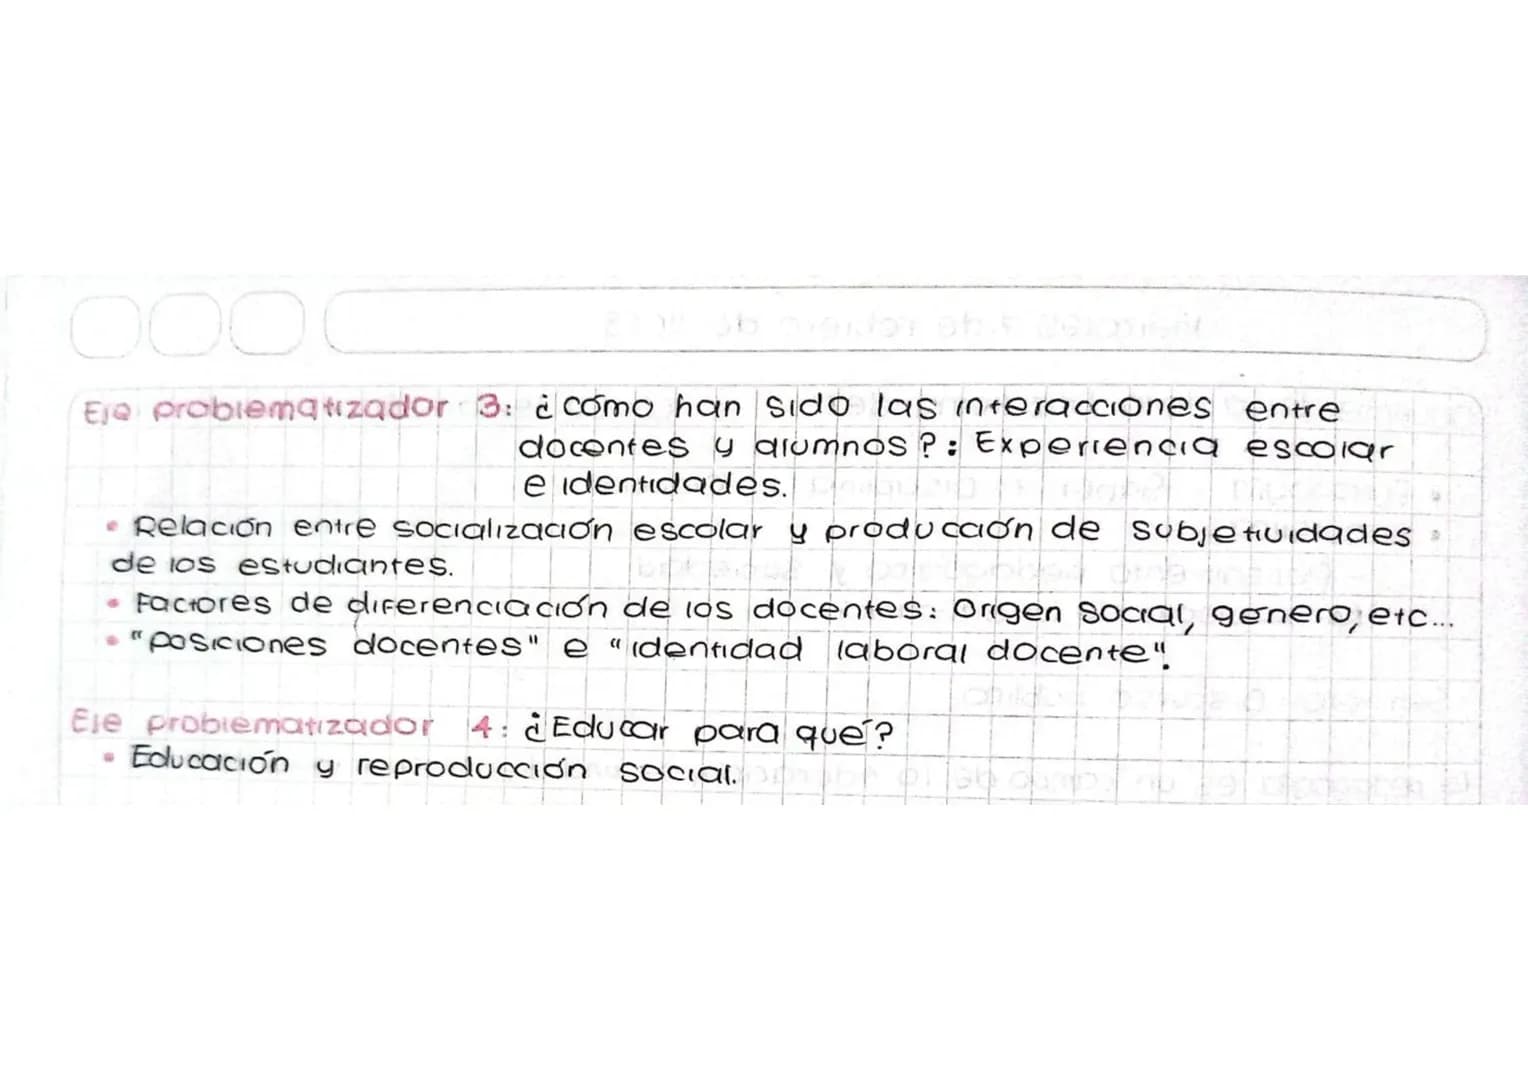 Eje problematizador 3: ¿cómo han sido las interacciones entre
docentes y alumnos?: Experiencia escolar
e identidades.
• Relación entre socialización escolar y producción de subjetividades
de los estudiantes.
• Factores de diferenciación de los docentes: Origen social, género, etc...
• "posiciones docentes" e "identidad laboral docente".
Eje problematizador 4: ¿Educar para qué?
• Educación y reproducción social.